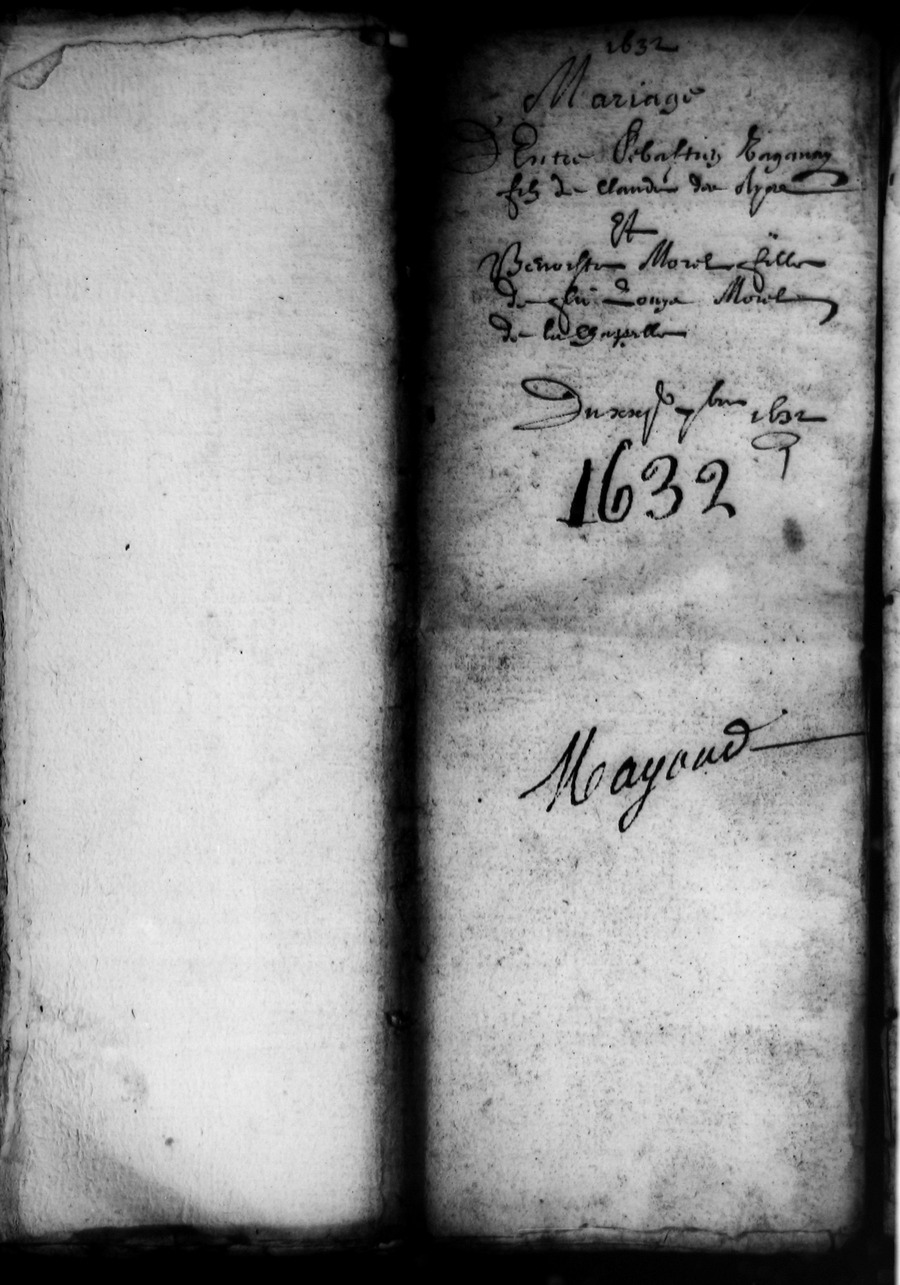 1632
Mariage
D'Entre Sebastien
filz de Claude de
Et
Benoiste Morel fille
de feu Morel
de la Chapelle
Du xxjᵉ 7bre 1632
1632
Mayoud